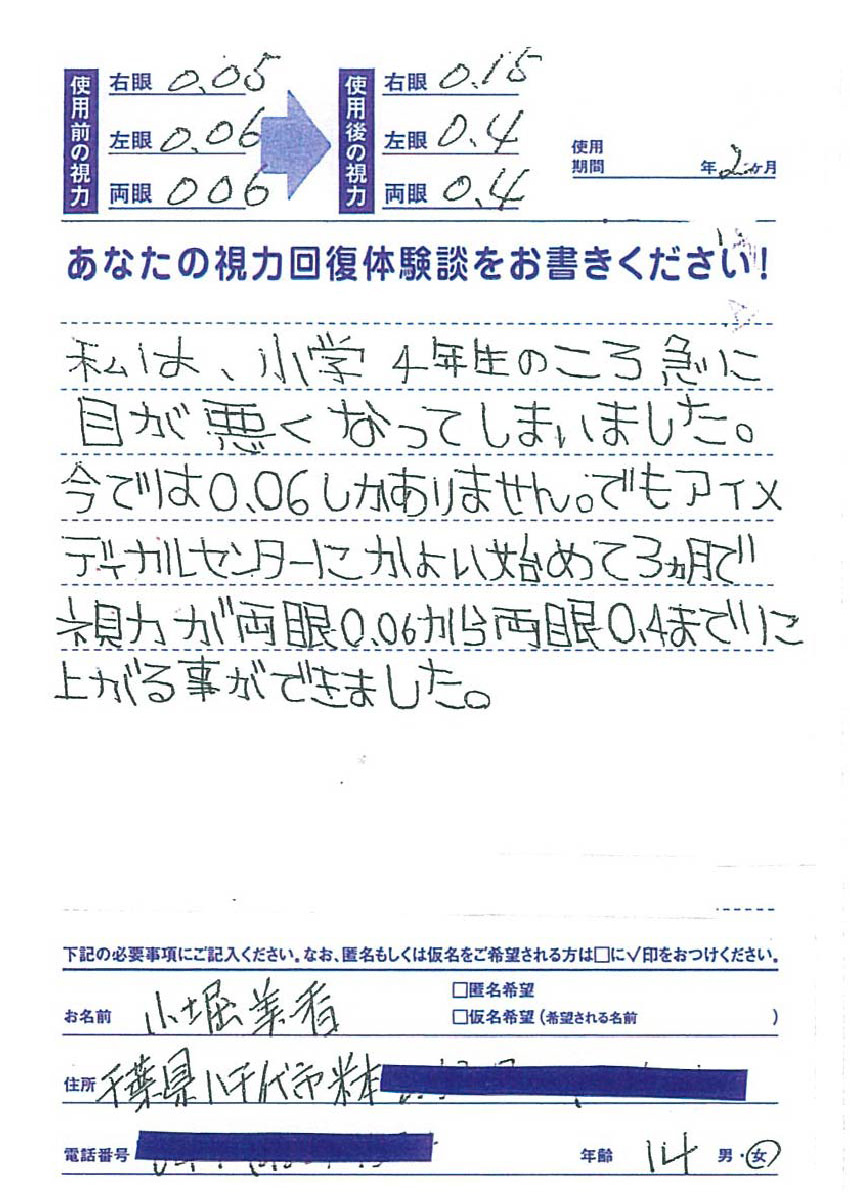 使用前の視力
右眼 0.05
左眼 0.06
両眼 006
使用後の視力
右眼 0.15
左眼 0.4
両眼 0.4
使用期間 年 2ヵ月
あなたの視力回復体験談をお書きください!
私は、小学4年生のころ急に
目が悪くなってしまいました。
今では0.06しかありません。でもアイメ
ディカルセンターにかよい始めて3ヵ月で
視力が両眼0.06から両眼0.4までに
上がる事ができました。
下記の必要事項にご記入ください。なお、匿名もしくは仮名をご希望される方は□に√印をおつけください。
お名前 小堀美香
□匿名希望
□仮名希望(希望される名前 )
住所 千葉県八千代市米本
電話番号
年齢 14 男・女